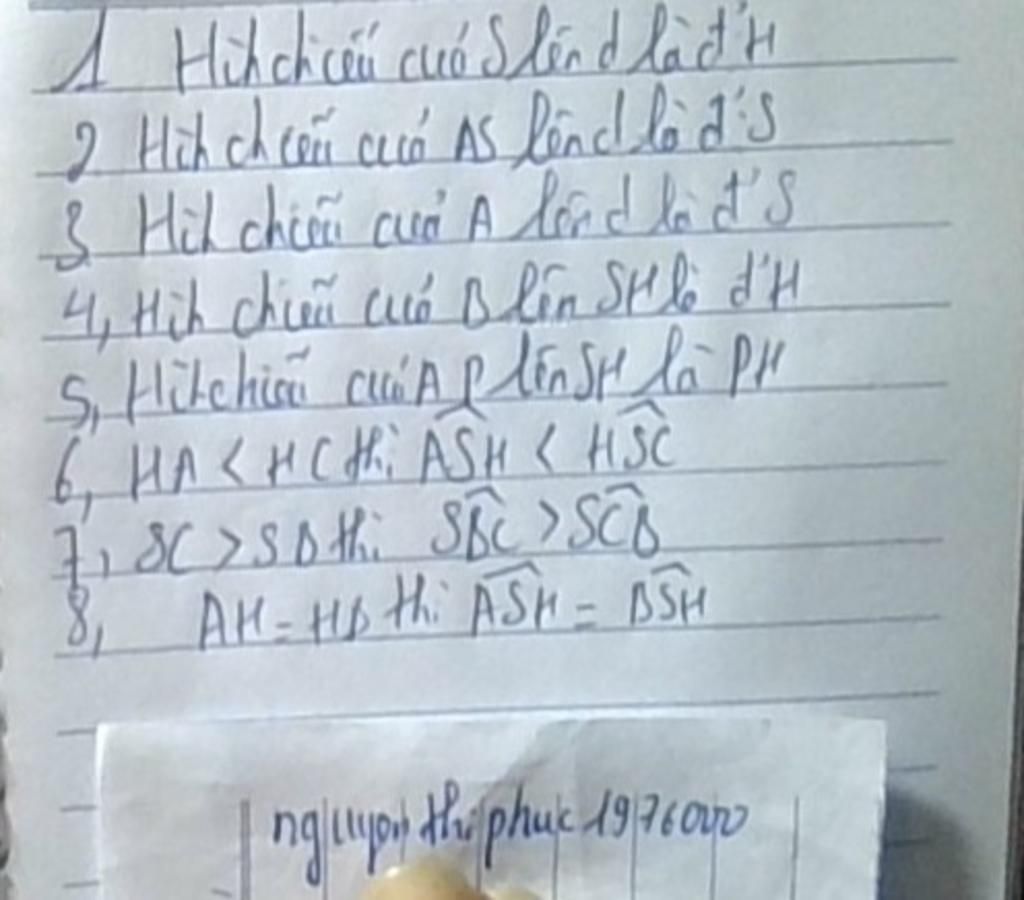 1 Hìh chiếu cuả S lên d là đ' H
2 Hìh chiếu cuả AS lên d là đ' S
3 Hìh chiếu cuả A lên d là đ' S
4, Hìh chiếu cuả B lên SH là đ' H
5, Hìh chiếu cuả AP lên SH là PH
6, HA < HC thì ASH < HSC
7, SC > SB thì SBC > SCB
8, AH = HB thì ASH = BSH
nguyen thi phuc 1976